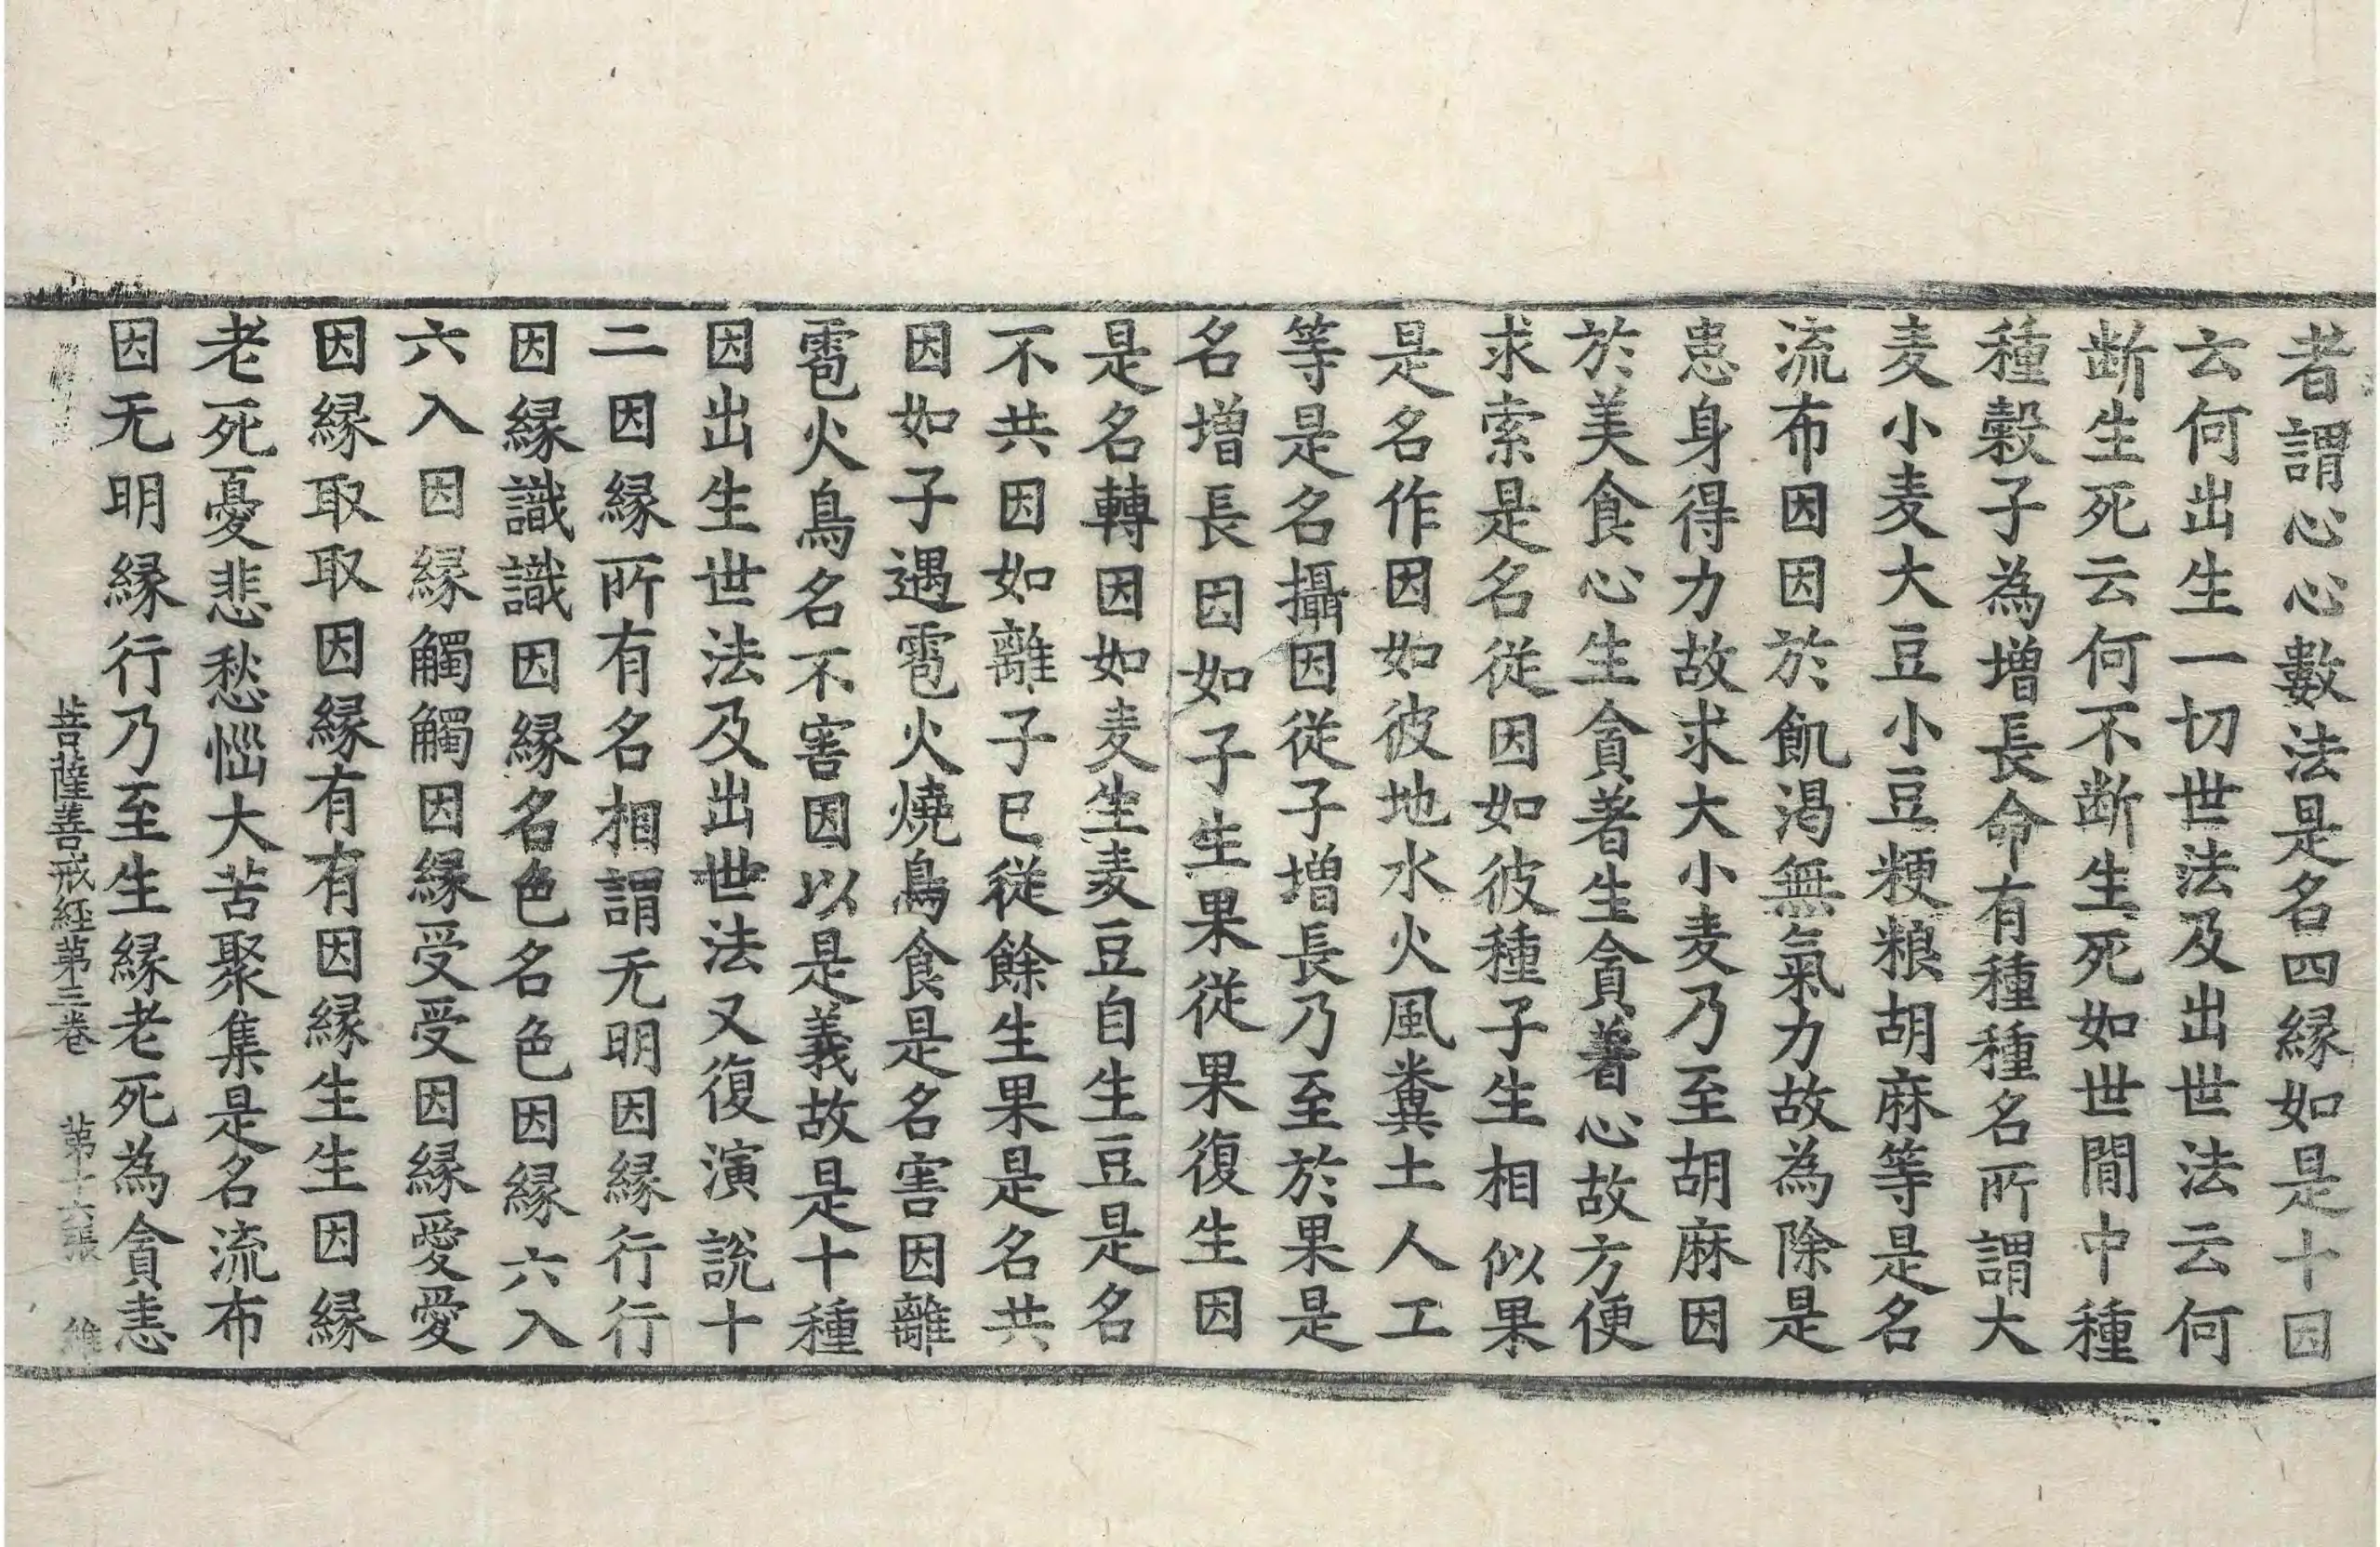 者謂心心數法是名四縁如是十因
云何出生一切世法及出世法云何
断生死云何不断生死如世間中種
種穀子為增長命有種種名所謂大
麦小麦大豆小豆粳粮胡麻等是名
流布因因於飢渴無氣力故為除是
患身得力故求大小麦乃至胡麻因
於美食心生貪著生貪著心故方便
求索是名從因如彼種子生相似果
是名作因如彼地水火風糞土人工
等是名攝因從子增長乃至於果是
名增長因如子生果從果復生因
是名轉因如麦生麦豆自生豆是名
不共因如離子已從餘生果是名共
因如子遇雹火燒鳥食是名害因離
雹火鳥名不害因以是義故是十種
因出生世法及出世法又復演說十
二因縁所有名相謂无明因縁行行
因縁識識因縁名色名色因縁六入
六入因縁觸觸因縁受受因縁愛愛
因縁取取因縁有有因縁生生因縁
老死憂悲愁惱大苦聚集是名流布
因无明縁行乃至生縁老死為貪恚
菩薩善戒経苐三卷 苐十六張 維